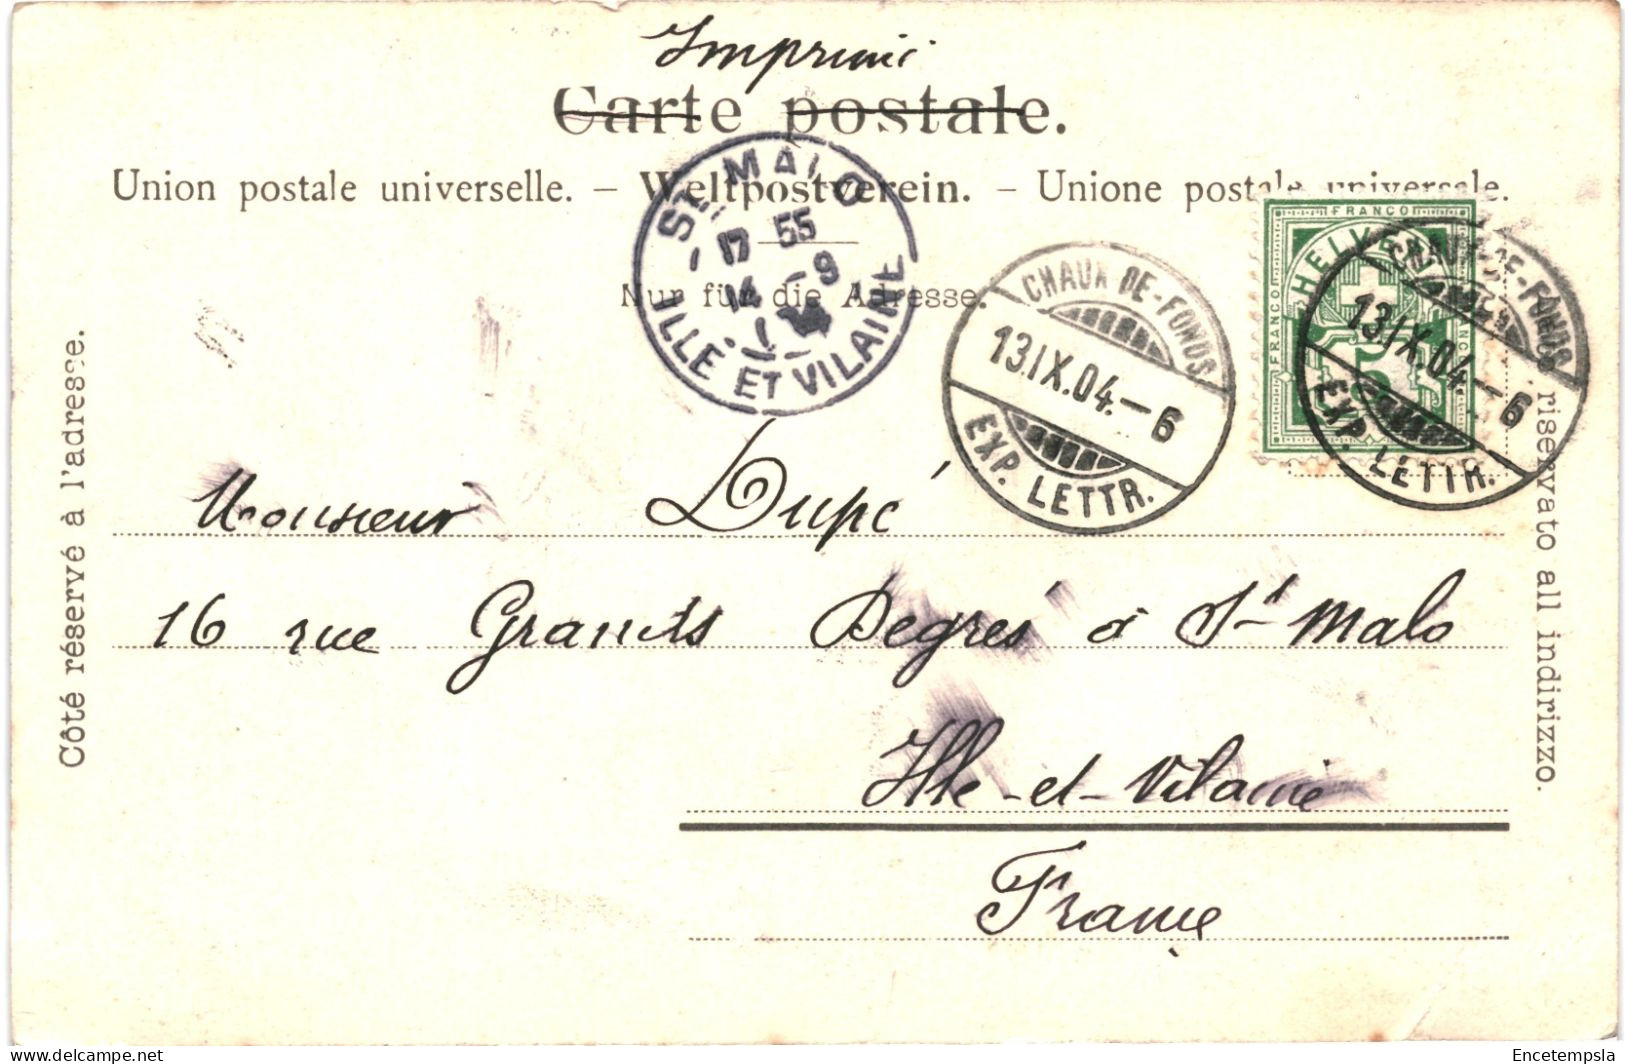 Imprimé
Carte postale.
Union postale universelle. – Weltpostverein. – Unione postale universale.
Nur für die Adresse.
Côté réservé à l'adresse.
riservato all indirizzo.
ST MALO
17 55
14 - 9
ILLE ET VILAINE
CHAUX-DE-FONDS
13.IX.04.–6
EXP. LETTR.
FRANCO
HELVETIA
FRANCO
5
CHAUX-DE-FONDS
13.IX.04.–6
EXP. LETTR.
Monsieur Dupé
16 rue Grands Degrés à St Malo
Ille-et-Vilaine
France
Encetempsla